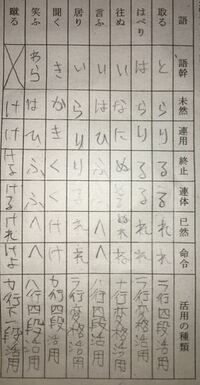 語 語幹 未然 連用 終止 連体 已然 命令 活用の種類
取る と ら り る る れ れ ラ行四段活用
はべり は ら り る る れ れ ラ行変格活用
往ぬ い な に ぬ ぬれ ナ行変格活用
言ふ い は ひ ふ ふ へ へ ハ行四段活用
居り い ら り り る れ れ ラ行変格活用
聞く き か き く く け け カ行四段活用
笑ふ わら は ひ ふ ふ へ へ ハ行四段活用
蹴る け け ける ける けれ けよ カ行下一段活用